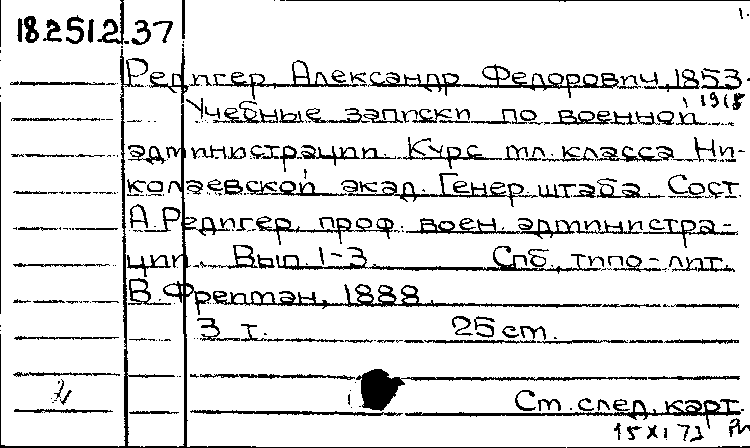 1.
18.251.2.37
Редигер, Александр Федорович, 1853-
1918
Учебные записки по военной
администрации. Курс мл. класса Ни-
колаевской акад. Генер. штаба. Сост.
А. Редигер, проф. воен. администра-
ции. Вып. 1-3. Спб., типо-лит.
В. Фрейман, 1888.
3 т. 25 cm.
См. след. карт.
15 XI 73